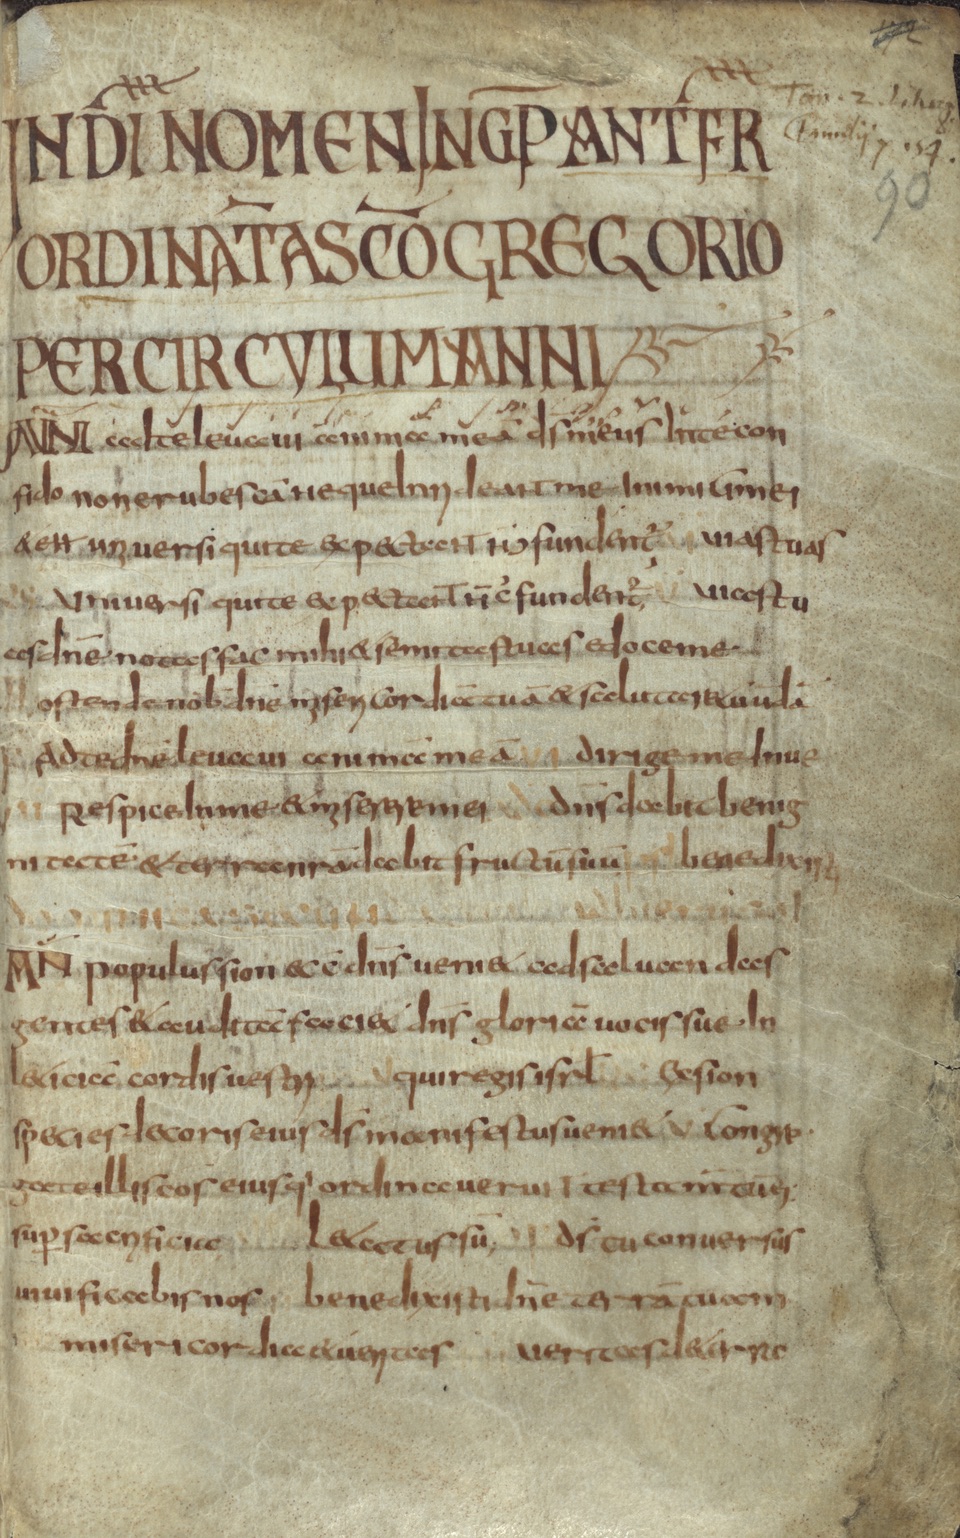 IN DĪ NOMEN INC̄P ANT FR
ORDINAT̄ A SC̄O GREGORIO
PER CIRCULUM ANNI
AN̄ ad te levavi animā meā ds̄ meus In te con
fido non erubescā neque Inrideant me Inimici mei
& eni universi qui te expectant nō fundent vias tuas
universi qui te expectant n̄ c̄fundent vias tu
as dn̄e notas fac mihi & semitas tuas edoce me
ostende nob dn̄e misericordiā tuā & salutare
Ad te dn̄e levavi animā meā dirige me In ve
Respice In me & miserere mei dn̄s dabit benig
nitatē & terra nrā dabit fructū suū benedixisti
AN̄ populus sion ecc̄ dn̄s veni& ad salvandas
gentes & auditā faci& dn̄s gloriā vocis sue In
l&iciā cordis vestri qui regis isrl̄ Ex sion
species decoris eius ds̄ manifestus veni& Congre
gate illi scōs eius q' ordinaverunt
sup sacrificia L&atus sū ds̄ tu conversus
vivificabis nos benedixisti dn̄e terrā tuam
misericordia & veritas veritas de terra
90